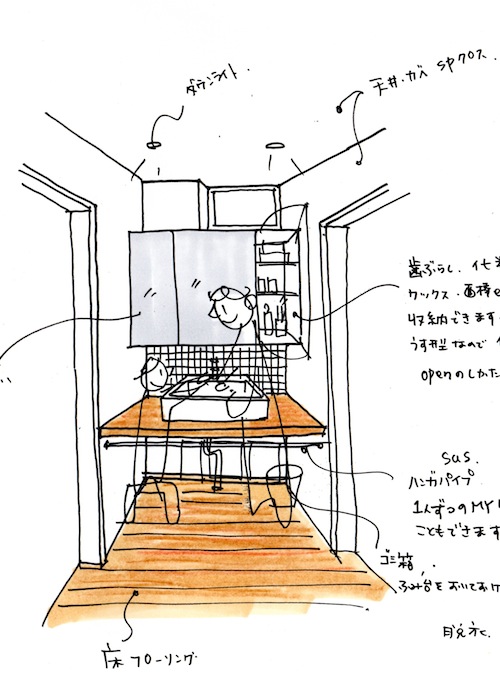 ダウンライト.
天井・カベ SPクロス.
歯ぶらし. イヒ
ワックス. 面棒
収納できます
うす型なので
openのしかた
SUS.
ハンガパイプ
1人ずつのMY
こともできます
ゴミ箱,
ふみ台をおいておけ
床 フローリング